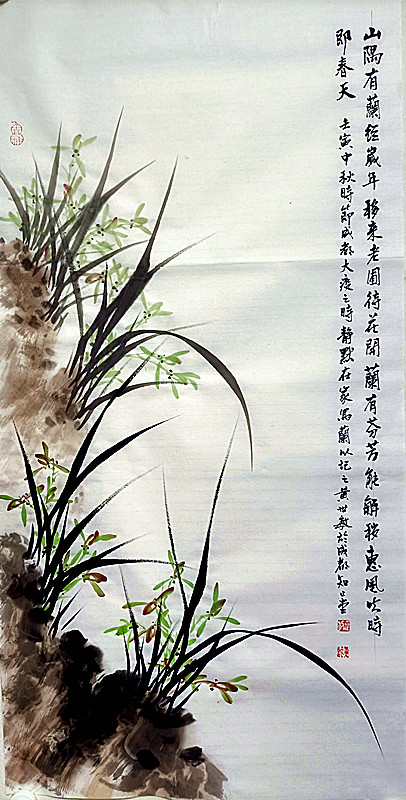 山隅有蘭經歲年移來老圃待花開蘭有芬芳能解穢惠風吹時
即春天 壬寅中秋時節成都大疫之時靜默在家寫蘭以記之黃世敏於成都知止堂